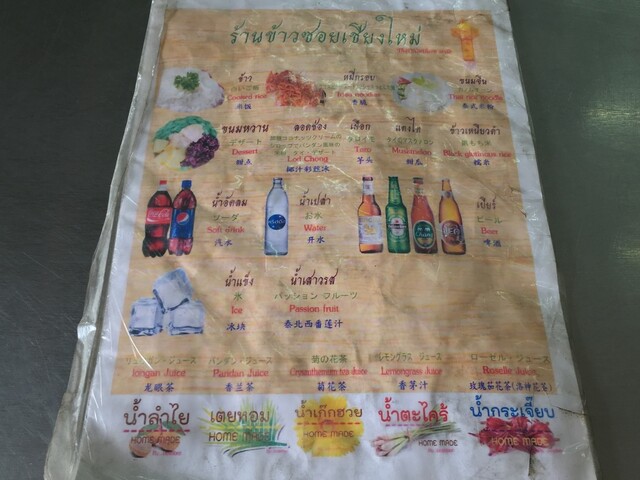 ร้านข้าวซอยเชียงใหม่
ข้าว
Cooked rice
米饭
หมี่กรอบ
ขนมจีน
泰式米粉
ขนมหวาน
デザート
Dessert
甜点
ลอดช่อง
Lod Chong
椰汁彩丝冰
เผือก
タロイモ
Taro
芋头
แตงไท
Muskmelon
甜瓜
ข้าวเหนียวดำ
黒もち米
Black glutinous rice
糯米
น้ำอัดลม
ソーダ
Soft drink
汽水
น้ำเปล่า
お水
Water
开水
เบียร์
ビール
Beer
啤酒
น้ำแข็ง
氷
Ice
冰块
น้ำเสาวรส
パッション フルーツ
Passion fruit
泰北西番莲汁
longan Juice
龙眼茶
パンダン・ジュース
Pandan Juice
香兰茶
菊の花茶
Chrysanthemum tea Juice
菊花茶
レモングラス ジュース
Lemongrass Juice
香茅汁
ローゼル・ジュース
Roselle Juice
玫瑰茄花茶(洛神花茶)
น้ำลำไย
HOME MADE
เตยหอม
HOME MADE
น้ำเก๊กฮวย
HOME MADE
น้ำตะไคร้
HOME MADE
น้ำกระเจี๊ยบ
HOME MADE